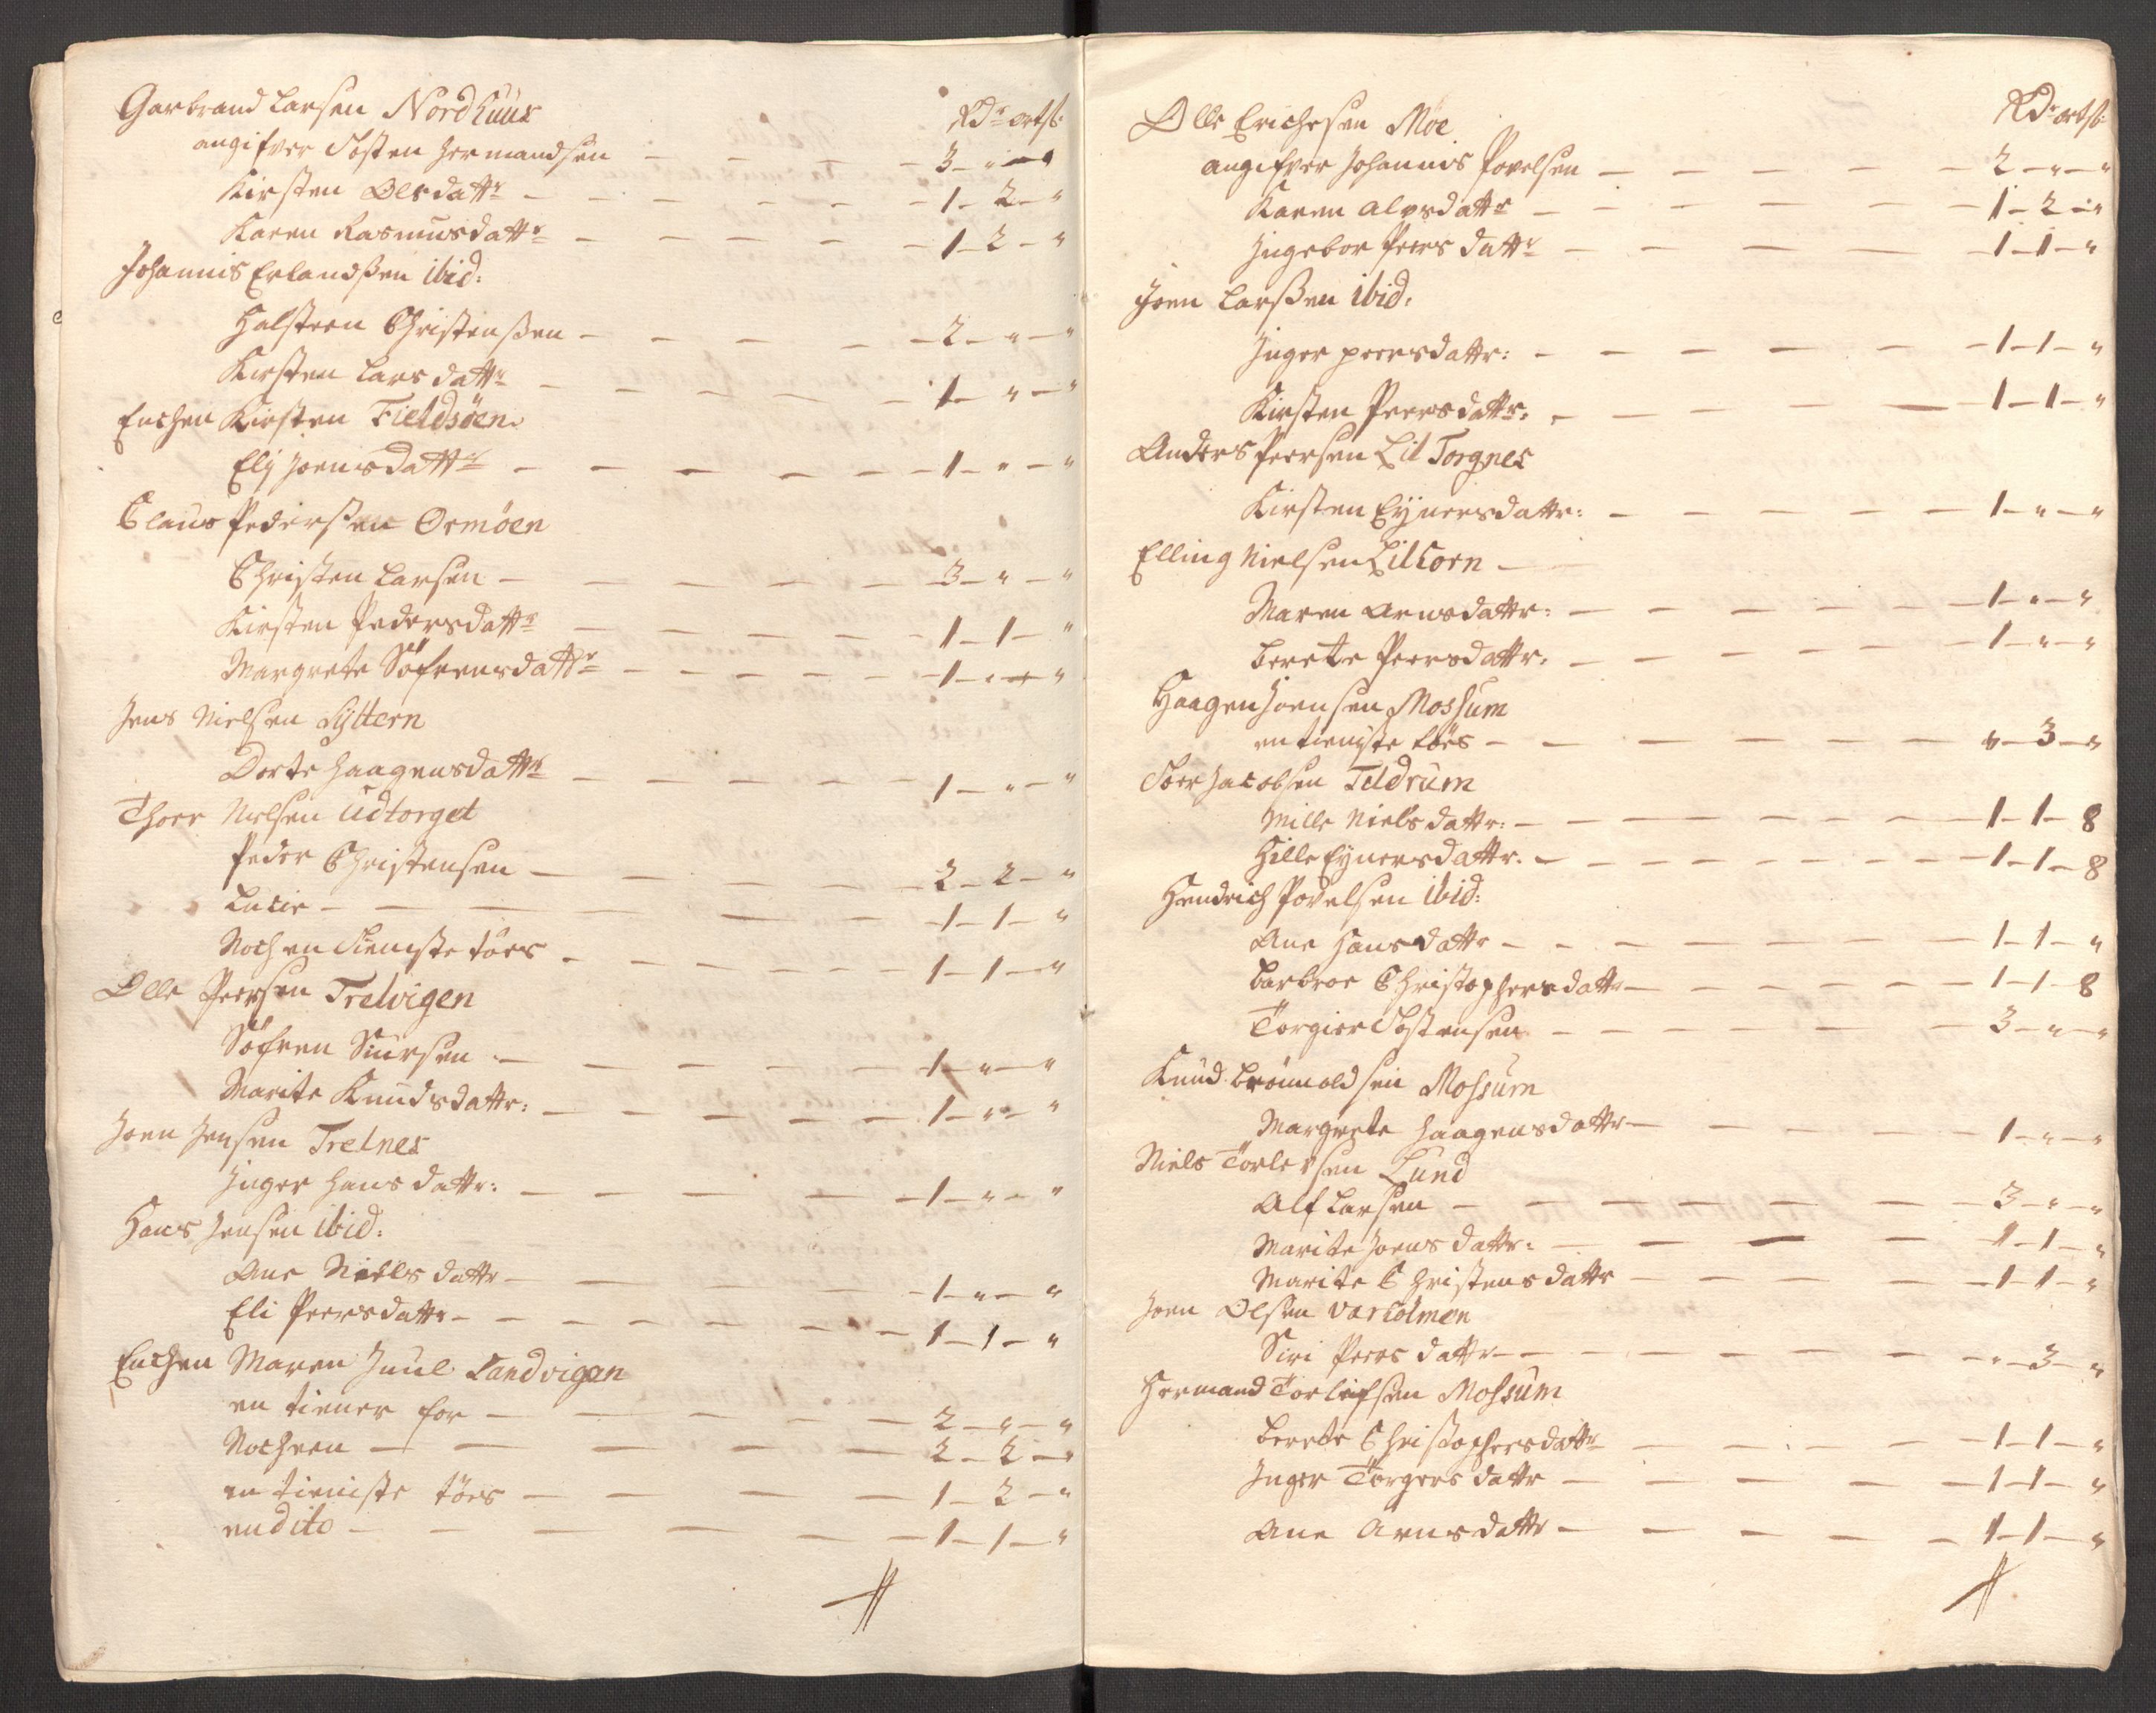 Garbrand Larsen Nordhuus
Rdr ort ß:
angifver Tosten Hermandsen — — — — 3 — " — "
Kirsten Olsdattr — — — — — — 1 — 2 — "
Karen Rasmusdattr — — — — — 1 — 2 — "
Johannis Erlandßen ibid:
Halsteen Christenßen — — — — — 2 — " — "
Kirsten Larsdattr — — — — — — 1 — " — "
Enchen Kirsten Fieldsöen
Elj Joensdattr — — — — — — 1 — " — "
Claus Pederßen Ormöen
Christen Larsen — — — — — — 3 — " — "
Kirsten Pedersdattr — — — — — 1 — 1 — "
Margrete Söfrensdattr — — — — — 1 — " — "
Jens Nielsen Sÿttern
Dorte Haagensdattr — — — — — 1 — " — "
Thoer Nielsen Udtorget
Peder Christensen — — — — — 2 — 2 — "
Lucie — — — — — — 1 — 1 — "
Noch en Tieniste töes — — — — — 1 — 1 — "
Olle Peersen Trelvigen
Söfren Siursen — — — — — — 1 — " — "
Marite Knudsdattr: — — — — — 1 — " — "
Joen Jensen Trelnes
Inger Hansdattr: — — — — — 1 — " — "
Hans Jensen ibid:
Ane Nielsdattr — — — — — 1 — " — "
Eli Peersdattr — — — — — — 1 — 1 — "
Enchen Maren Juul Sandvigen
en tiener for — — — — — 2 — " — "
Noch een — — — — — 2 — 2 — "
en tieniste töes — — — — 1 — 2 — "
en dito — — — — — 1 — 1 — "
Olle Erichsen Moe
Rdr ort ß:
angifver Johannis Povelsen — — — — — 2 — " — "
Karen Alvsdattr — — — — — — 1 — 2 — "
Ingebor Peersdattr — — — — — 1 — 1 — "
Joen Larßen ibid:
Inger Peersdattr: — — — — — 1 — 1 — "
Kirsten Peersdattr: — — — — — 1 — 1 — "
Anders Peersen Lil Torgnes
Kirsten Eÿnersdattr: — — — — — 1 — " — "
Elling Nielsen Lil —
Maren Arnsdattr: — — — — — 1 — " — "
Berete Peersdattr: — — — — — 1 — " — "
Haagen Joensen Moshum
en tieniste töes — — — — — " — 3 — "
Toer Jacobsen Teldrum
Mille Nielsdattr: — — — — — — 1 — 1 — 8
Hille Eÿnersdattr: — — — — — — 1 — 1 — 8
Hendrich Povelsen ibid:
Ane Hansdattr — — — — — — 1 — 1 — "
Barbroe Christophersdattr — — — — — 1 — 1 — 8
Torgier Tostensen — — — — — — 3 — " — "
Knud Brönnoldsen Moshum
Margrete Haagensdattr — — — — 1 — " — "
Niels Torlefsen Lund
Alf Larsen — — — — — — 3 — " — "
Marite Joensdattr: — — — — — 1 — 1 — "
Marite Christensdattr — — — — 1 — 1 — "
Joen Olsen Varholmen
Siri Peersdattr — — — — — — " — 3 — "
Hermand Torlefsen Moshum
Berete Christophersdattr — — — — 1 — 1 — "
Inger Torgersdattr — — — — — 1 — 1 — "
Ane Arnsdattr — — — — — 1 — 1 — "